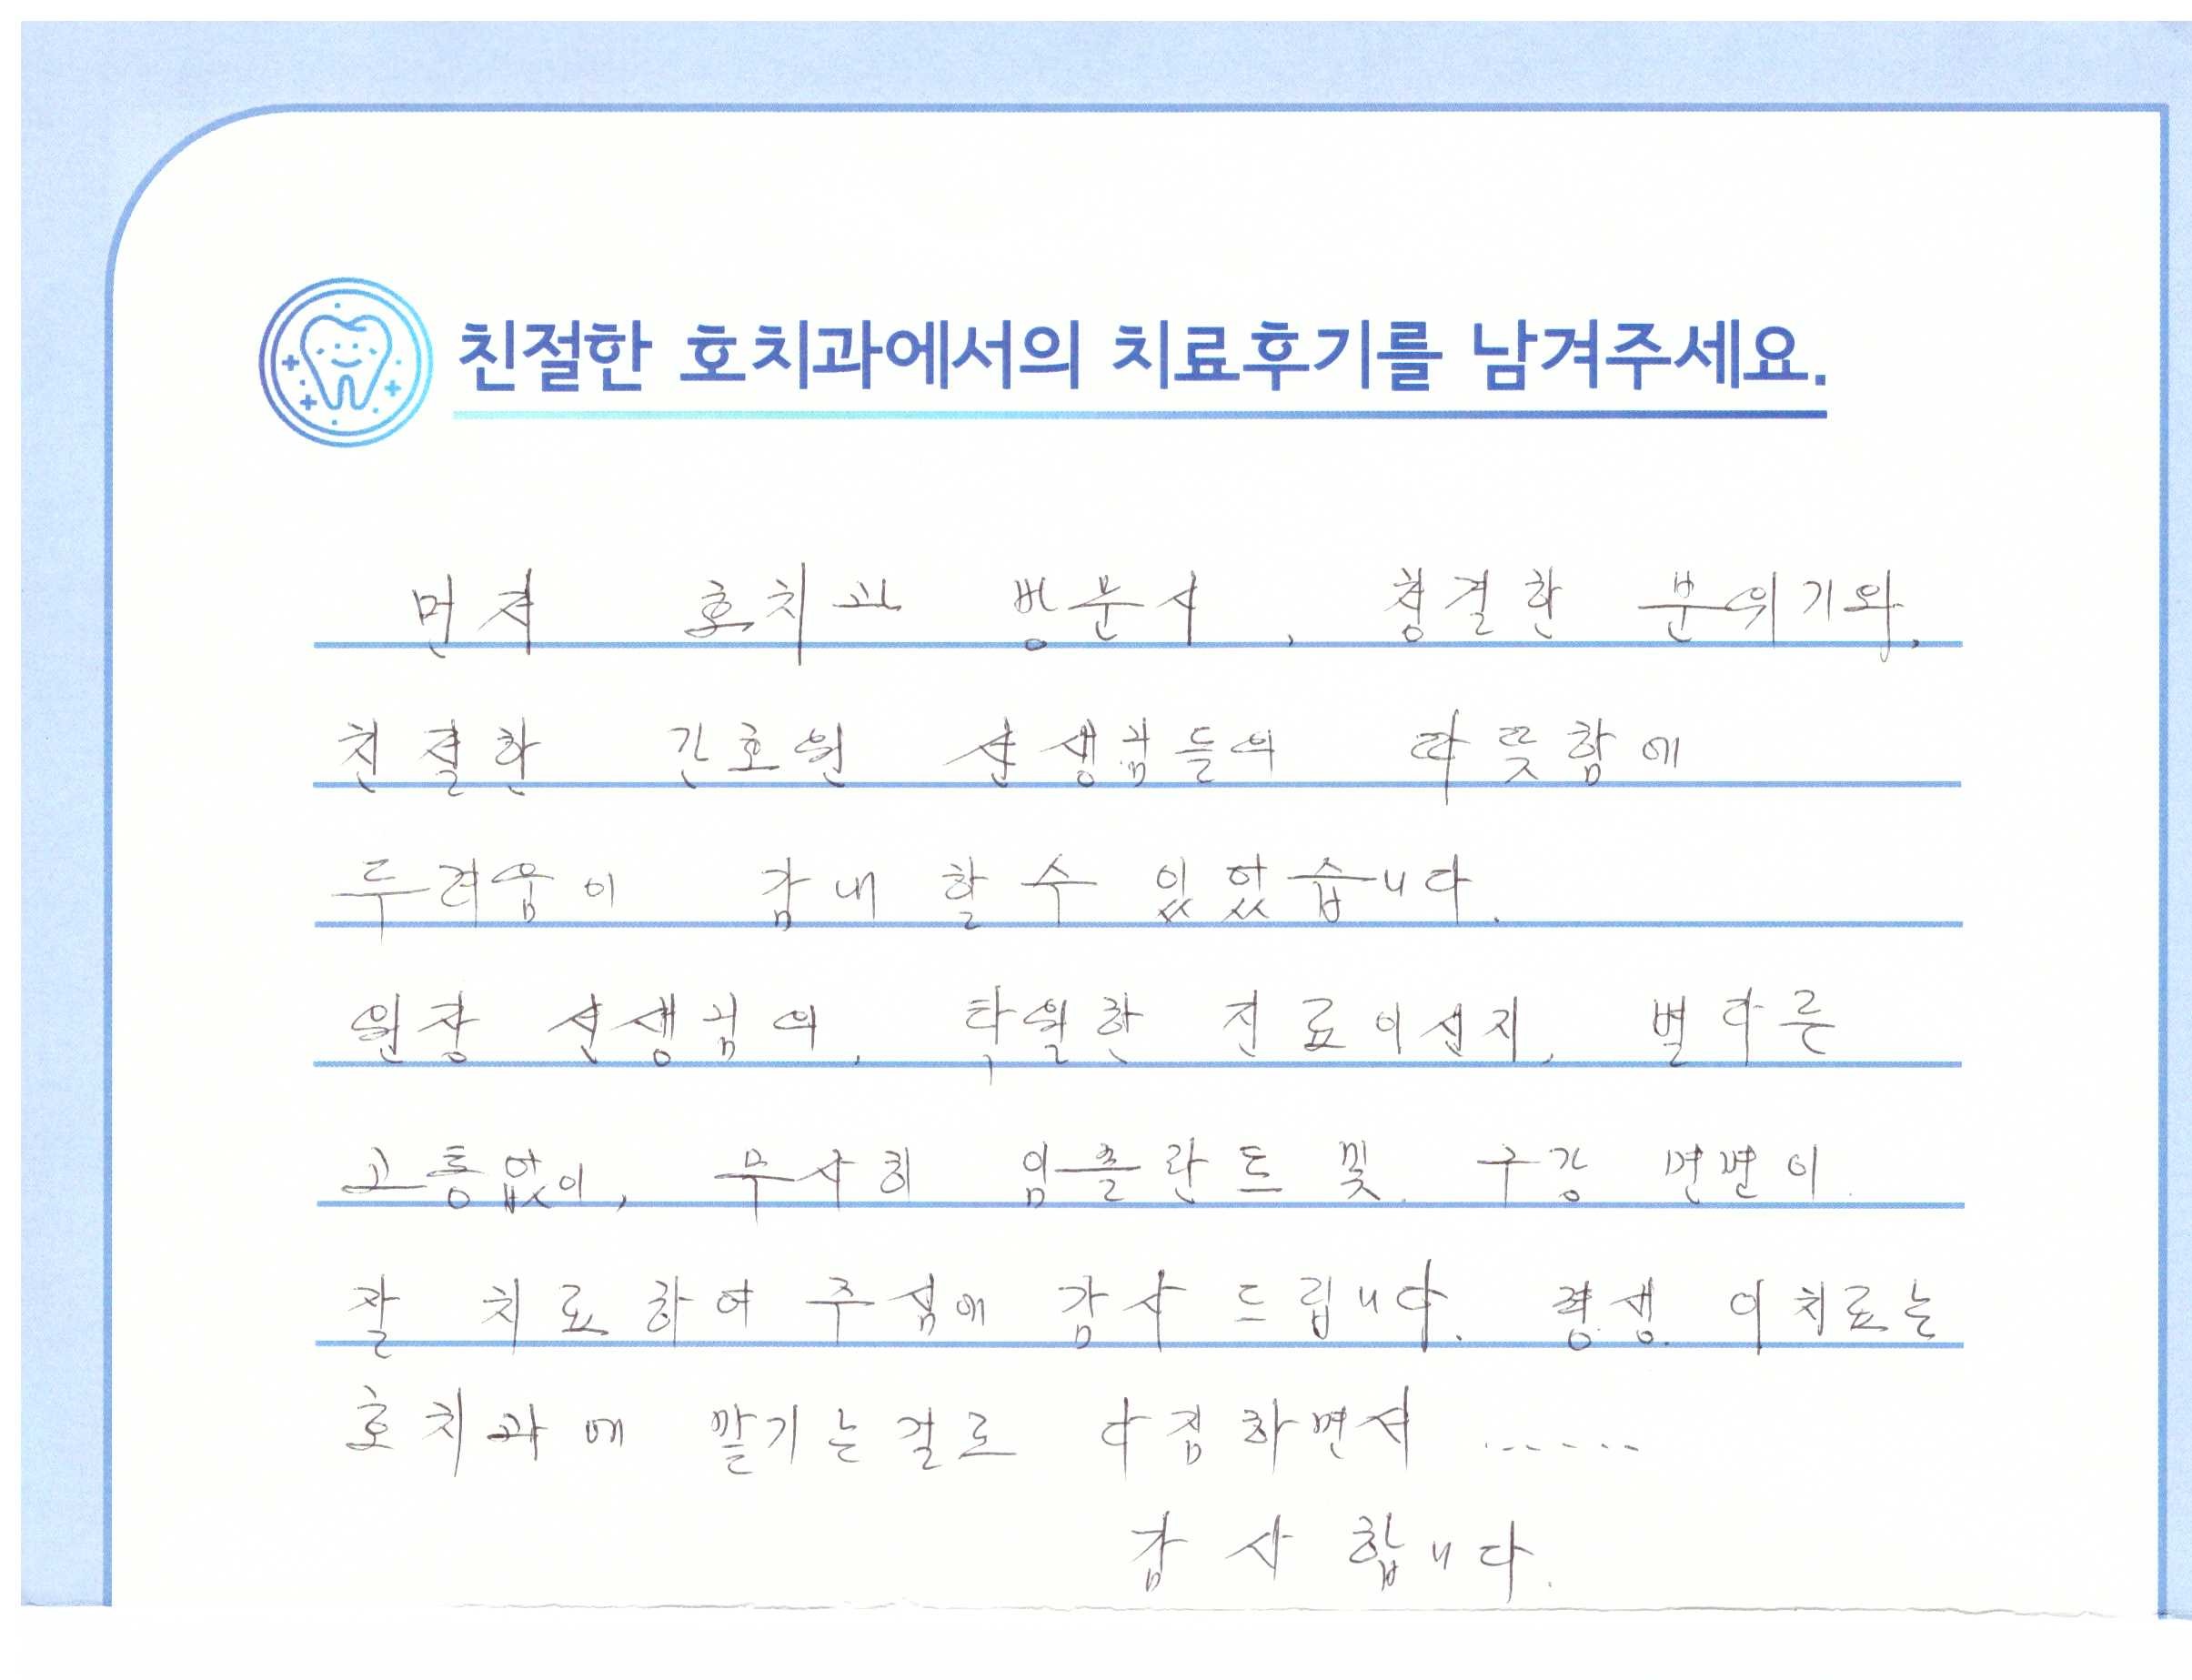 친절한 호치과에서의 치료후기를 남겨주세요.
먼저 호치과 방문시, 청결한 분위기와,
친절한 간호원 선생님들의 따뜻함에
두려움이 감내 할 수 있었습니다.
원장 선생님의, 탁월한 진료이신지, 별다른
고통없이, 무사히 임플란트 및. 구강 면면이.
잘 치료하여 주심에 감사 드립니다. 평생. 이치료는
호치과에 맡기는걸로 다짐하면서 ......
감사합니다.